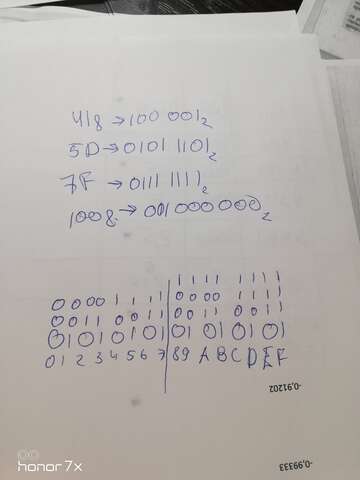 41₈ → 100 001₂
5D → 0101 1101₂
7F → 0111 1111₂
100₈ → 001 000 000₂
1 1 1 1 1 1 1 1
0 0 0 0 1 1 1 1 0 0 0 0 1 1 1 1
0 0 1 1 0 0 1 1 0 0 1 1 0 0 1 1
0 1 0 1 0 1 0 1 0 1 0 1 0 1 0 1
0 1 2 3 4 5 6 7 8 9 A B C D E F
-0,91202
-0,99333
honor 7x